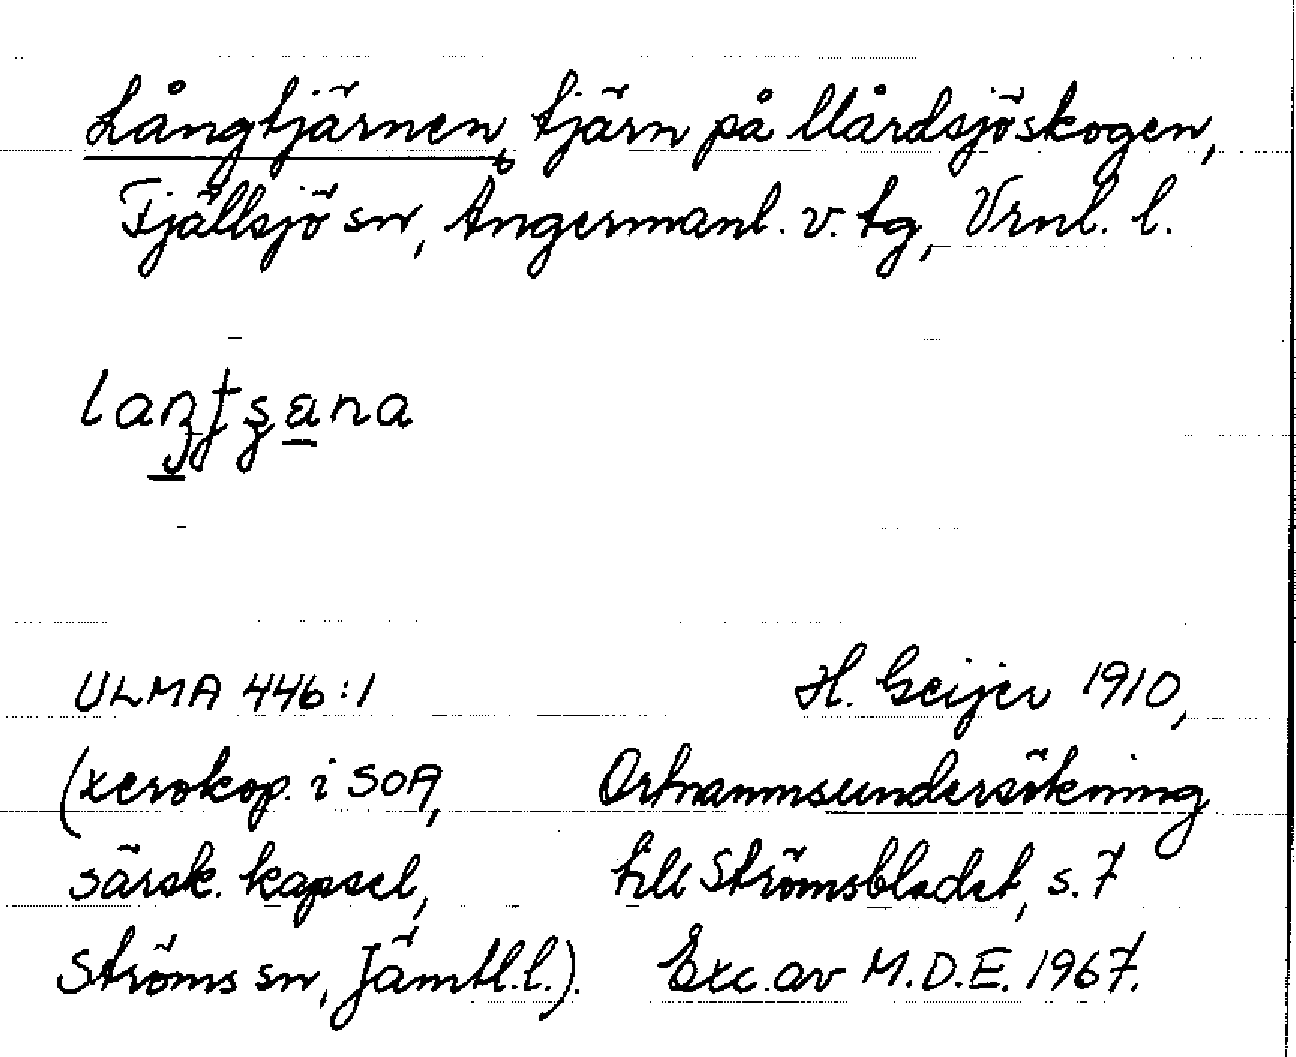 Långtjärnen, tjärn på Mårdsjöskogen,
Fjällsjö sn, Ångermanl. v. tg, Vrnl. l.
ULMA 446:1
H. Geijer 1910,
(xerokop. i SOA,
Ortnamnsundersökning
särsk. kapsel,
till Strömsbladet, s. 7
Ströms sn, Jämtl. l.).
Exc. av M.D.E. 1967.